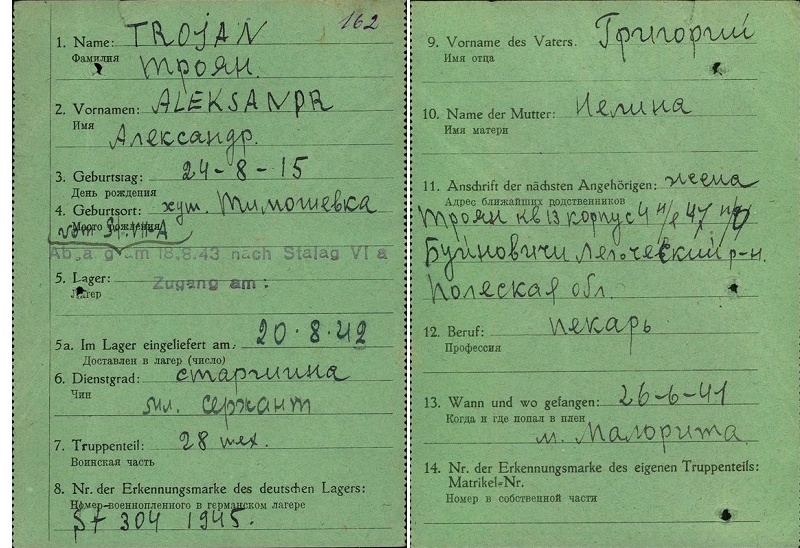 162
1. Name: TROJAN
Фамилия
Троян.
2. Vornamen: ALEKSANDR
Имя
Александр.
3. Geburtstag: 24-8-15
День рождения
4. Geburtsort: хут. Тимошевка
Место рождения
vom St. VII-A
Abgang am 18.8.43 nach Stalag VI a
Zugang am :
5. Lager:
Лагерь
5a. Im Lager eingeliefert am: 20·8·42
Доставлен в лагерь (число)
6. Dienstgrad: старшина
Чин
мл. сержант
7. Truppenteil: 28
Воинская часть
8. Nr. der Erkennungsmarke des deutschen Lagers:
Номер военнопленного в германском лагере
St 304 1945.
9. Vorname des Vaters. Григорий
Имя отца
10. Name der Mutter:
Имя матери
11. Anschrift der nächsten Angehörigen: жена
Адрес ближайших родственников
Троян кв 13 корпус 4 47
Буйновичи р-н.
Полеская обл.
12. Beruf: пекарь
Профессия
13. Wann und wo gefangen: 26-6-41
Когда и где попал в плен
м. Малорита
14. Nr. der Erkennungsmarke des eigenen Truppenteils:
Matrikel-Nr.
Номер в собственной части